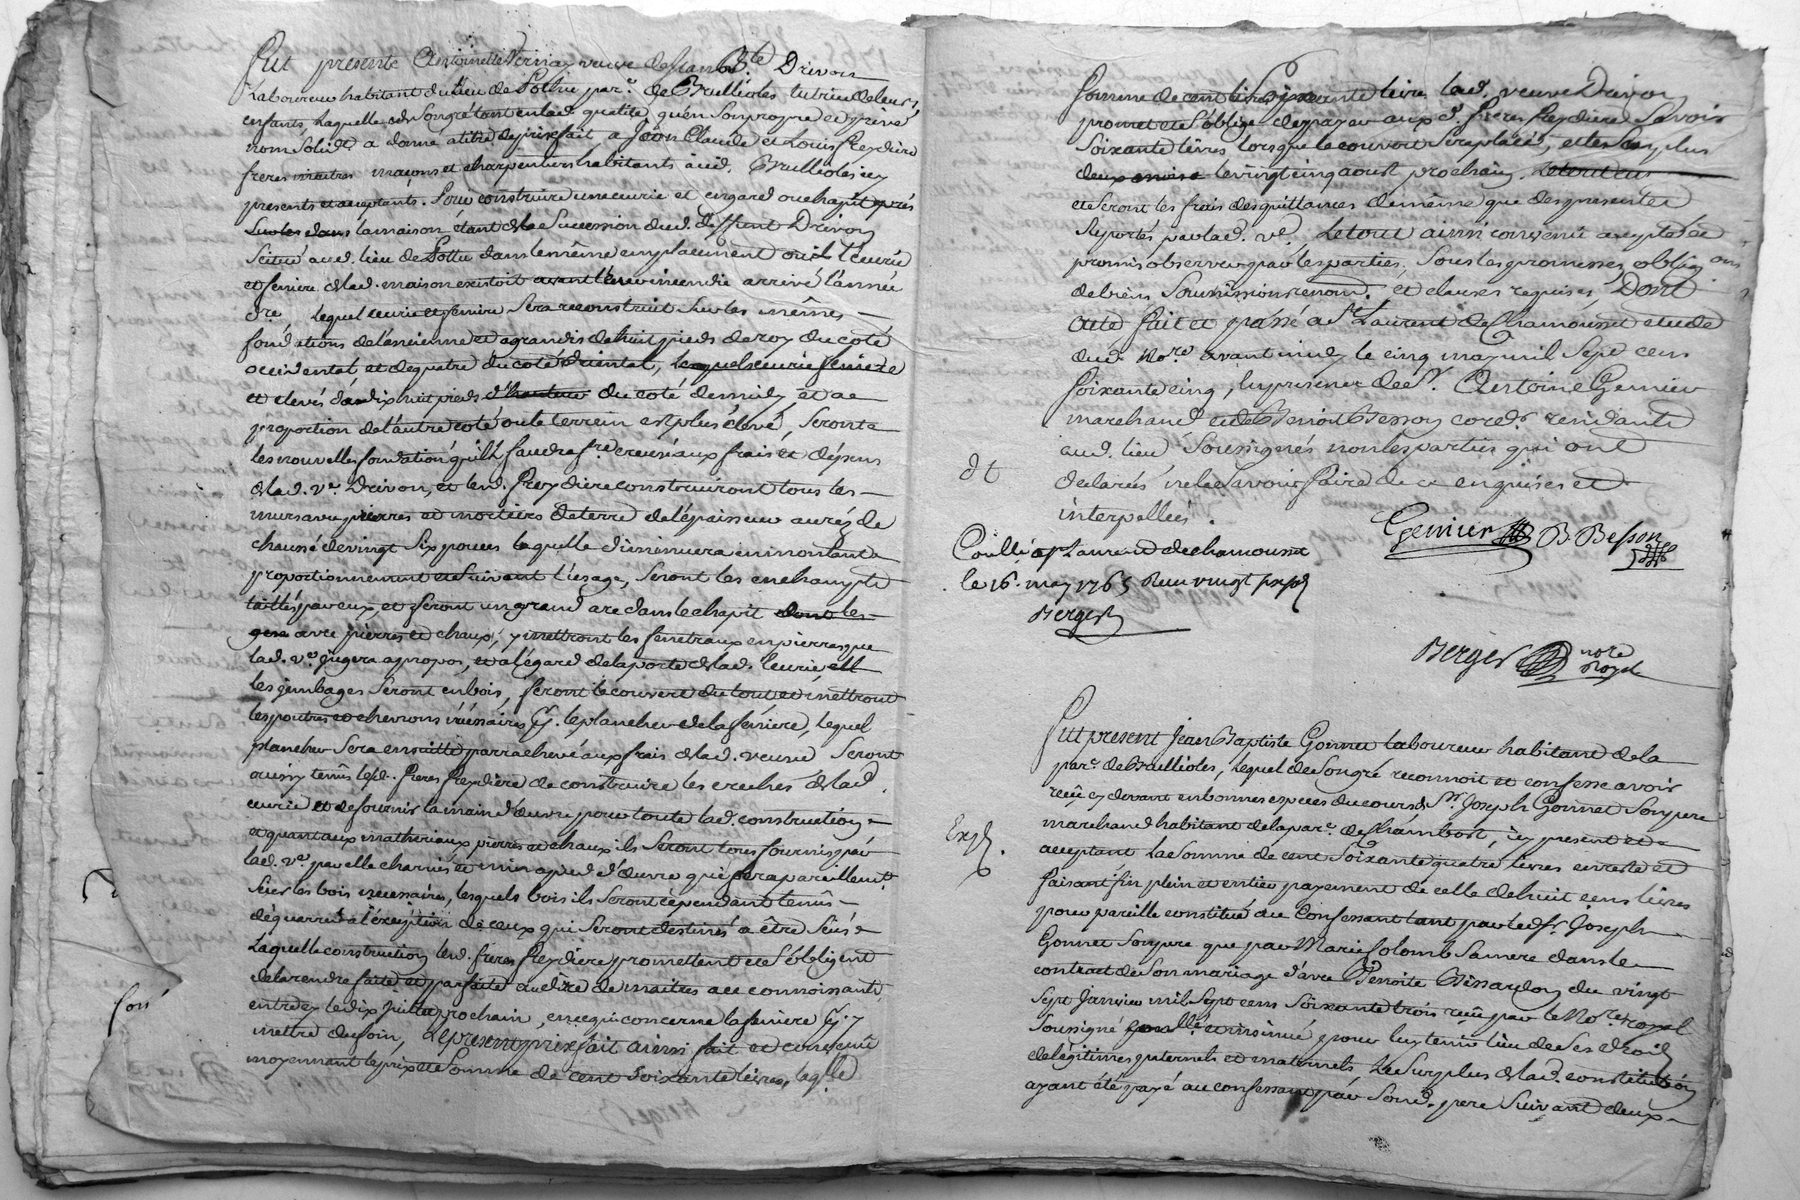 Fut presente Antoinette Vernay veuve de Jean Bte Drivon
Laboureur habitant du lieu de Sottu parse de Brullioles tutrice de leurs
enfants, Laquelle de son gré tant en lad. qualité qu'en son propre et privé
nom solidt a donné a titre de prixfait a Jean Claude et Louis Freydiere
freres maitres maçons et charpentiers habitants aud. Brullioles icy
presents et acceptants. Pour construire une ecurie et engard ou chapit
dans la maison étant de la Succession dud. deffunt Drivon
Scitué aud. lieu de Sottu dans le même emplacement ou l'ecurie
et feniere de lad. maison existoit avant l'incendie arrivé l'année
dre lequel ecurie et feniere sera reconstruit sur les mêmes
fondations de l'ancienne et agrandis de huit pieds de roy du coté
occidental et de quatre du coté oriental, lesquels ecurie feniere
et elevés de dix huit pieds d'hauteur du coté de midy, et a
proportion de l'autre coté ou le terrein est plus élevé, Seront
les nouvelles fondation qu'il faudra fre creusé aux frais et dépens
de lad. ve Drivon, et lesd. Freydiere construiront tous les
murs avec pierres et mortiers de terre de l'épaisseur au réz de
chaussé de vingt six pouces laquelle diminuera en montant
proportionnement et suivant l'usage, Seront les
taillés et feront un grand arc dans le chapit
avec pierres et chaux, y mettront les fenetraux en pierres que
lad. ve jugera apropos, et a l'égard de la porte de lad. Ecurie,
les jambages seront en bois, feront le couvert du tout et mettront
les poutres et chevrons nécessaires le plancher de la feniere, lequel
plancher sera ensuitte parrachevé aux frais de lad. veuve Seront
aussy tenûs lesd. freres Freydiere de construire les creches de lad.
ecurie et de fournir la main d'œuvre pour toute lad. construction
et quant aux matheriaux pierres et chaux ils Seront tous fournis par
lad. ve par elle charriés et mis a pied d'œuvre que fera pareillemt
scier les bois nécessaires, lesquels bois ils Seront cependant tenûs
déquerrer a l'exception de ceux qui Seront destinés a être Sciés
Laquelle construction lesd. freres Freydiere promettent et S'obligent
de la rendre faite et parfaite au dire de maitres a ce connoissants
entre cy le dix juillet prochain, en ce qui concerne la feniere
mettre du foin, Le present prixfait ainsi fait et convenû
moyennant le prix et Somme de cent soixante livres, laqlle
Somme de cent soixante livres lad. veuve Drivon
promet et s'oblige de payer aux d. freres Freydiere Savoir
Soixante livres lorsque le couvert Sera placé, et le Surplus
le vingt cinq aoust prochain,
et Seront les frais des quittances de même que des presentes
Suportés par lad. ve. Le tout ainsi convenû accepté et
promis observer par les parties, Sous les promesses, obligaons
de biens Soumissions renonc. et clauses requises, Dont
Acte fait et passé a St Laurent de Chamousset etude
dud. Nore avant midy le cinq may mil Sept cens
soixante cinq, En presence de Sr. Antoine Genier
marchand et de Benoit Besson cordr. residants
aud. lieu Soussignés non les parties qui ont
declarés ne le Savoir faire de ce enquises et
interpellées.
dt
Genier B Besson
Coullé a St Laurend de chamousset
le 16. may 1765 Reçu vingt
Berger
Berger nore
Royal
Fut present Jean Baptiste Gonnet laboureur habitant de la
parse de Brullioles, Lequel de Son gré reconnoit et confesse avoir
reçû cy devant en bonnes especes du cours de Sr Joseph Gonnet Son pere
marchand habitant de la parse de Chambost, icy present et
acceptant La Somme de cent Soixante quatre livres en reste et
faisant fin plein et entier payement de celle de huit cens livres
pour pareille constitué au Confessant tant par led. Sr. Joseph
Gonnet Son pere que par Marie Colomb Sa mere dans le
contract de Son mariage d'avec Benoite Bissardon du vingt
Sept Janvier mil Sept cens Soixante trois reçu par le Nore royal
Soussigné et insinué pour luy tenir lieu de Ses droits
de legitimes paternels et maternels, Le Surplus de lad. constitution
ayant été payé au confessant par Sond. pere Suivant deux
Expd.
foni